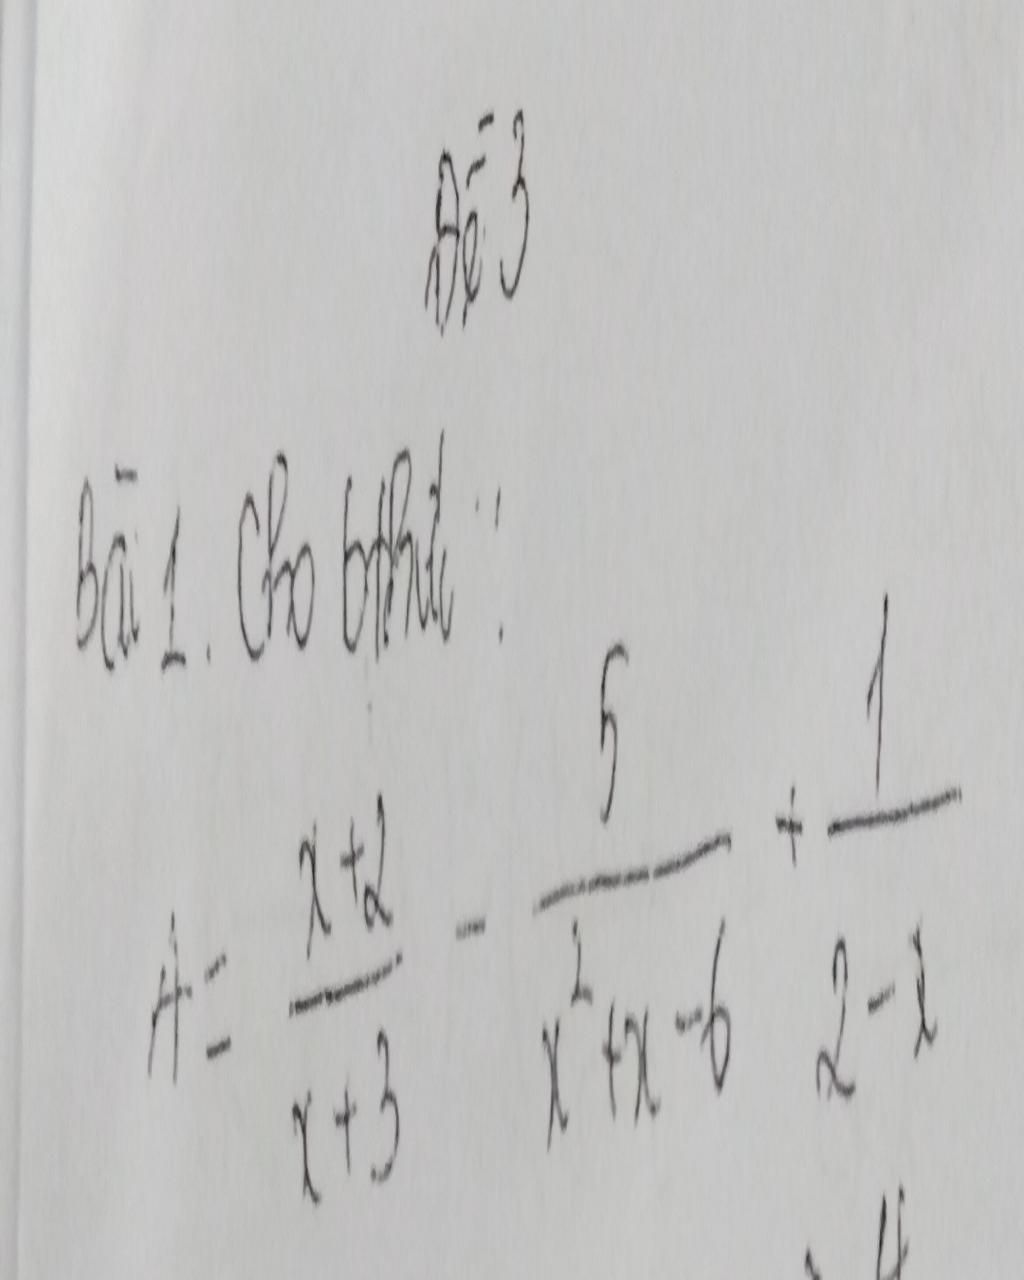 Đề 3
Bài 1. Cho bthức:
A = \frac{x+2}{x+3} - \frac{5}{x^2+x-6} + \frac{1}{2-x}